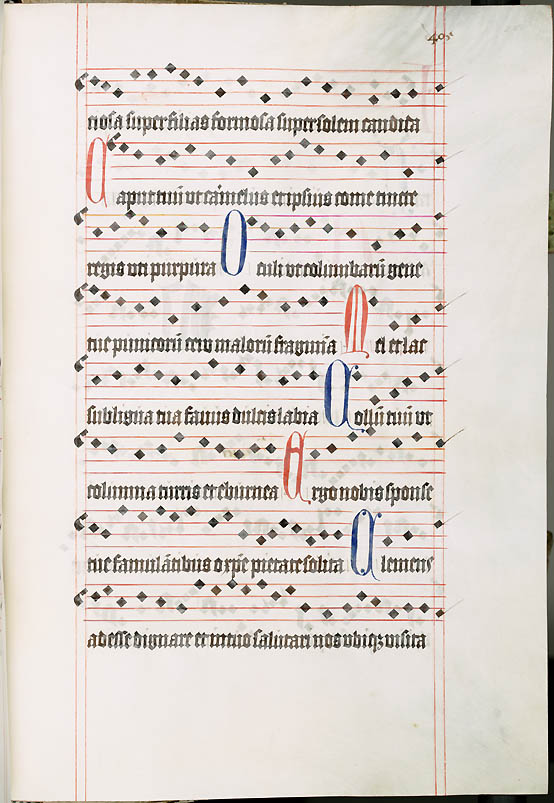 niosa super filias formosa super solem candida
Caput tuū ut camelus et ipsius come tincte
regis uti purpura Oculi ut columbarū gene
tue punicorū ceu malorū fragmīa Mel et lac
sub ligua tua fauus dulcis labia Collū tuū ut
columna turris et eburnea Ergo nobis sponse
tue famulātibus o xp̄e pietate solita Clemens
adesse dignare et in tuo salutari nos ubiqꝫ uisita